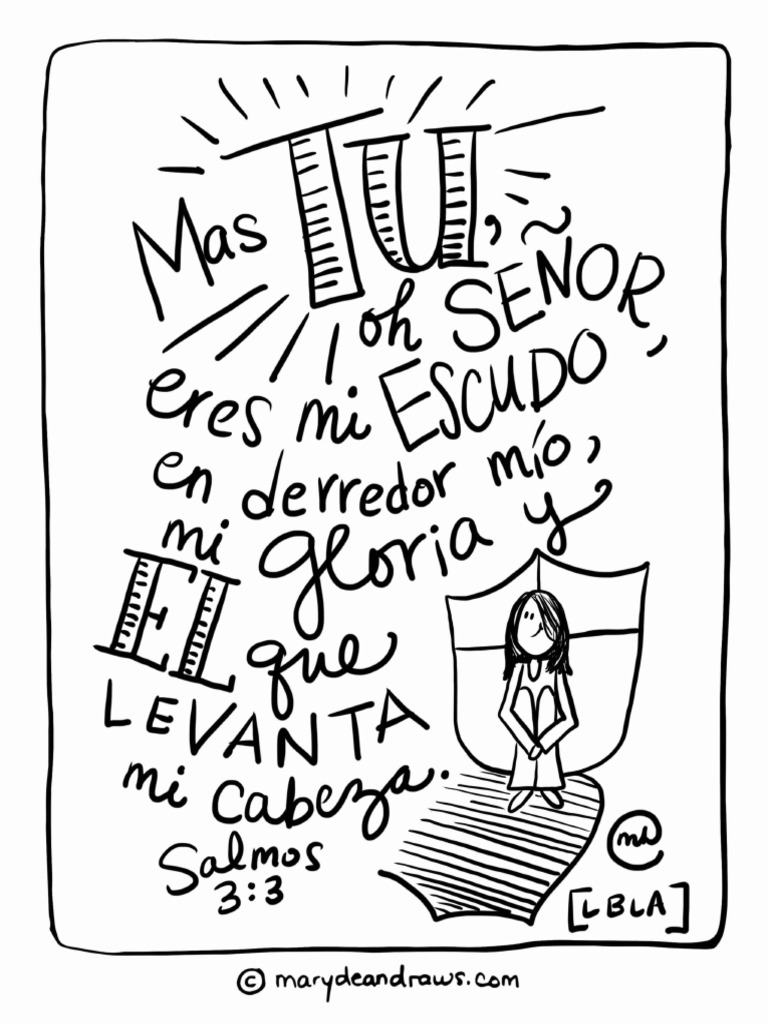 Mas TÚ,
oh SEÑOR,
eres mi ESCUDO
en derredor mío,
mi gloria y
EL que
LEVANTA
mi cabeza.
Salmos
3:3
md
[LBLA]
© marydeandraws.com